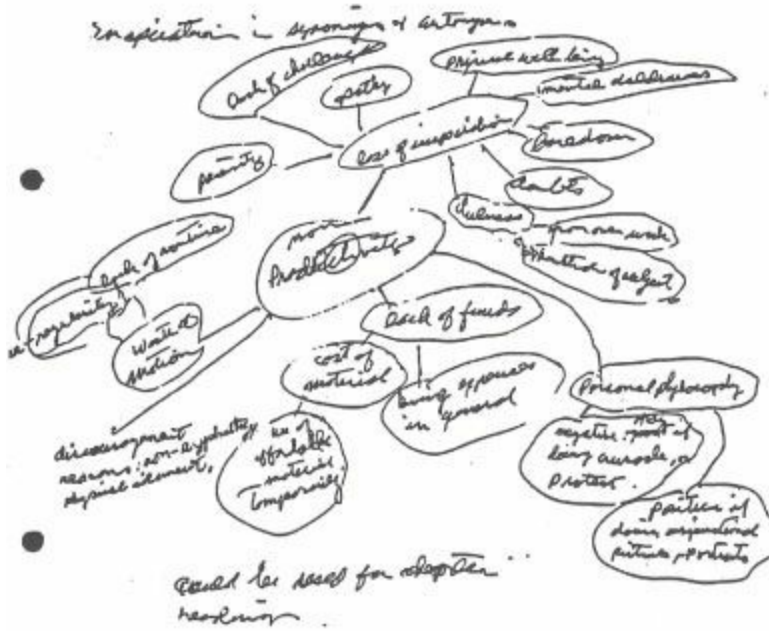 in synonyms & antonyms
lack of challenge
pathy
physical well being
mental
loss of inspiration
boredom
poverty
doubts
dulness
from over work
of subject
non
Productivity
lack of routine
regularity
waste of
motion
lack of funds
cost of
material
living expenses
in general
personal phylosophy
discouragement
reasons: non-
physical ailment,
use of
affordable
material
temporarily
negative,
doing
protest.
positive if
doing inspirational
pictures, portraits
could be used for chapter
headings